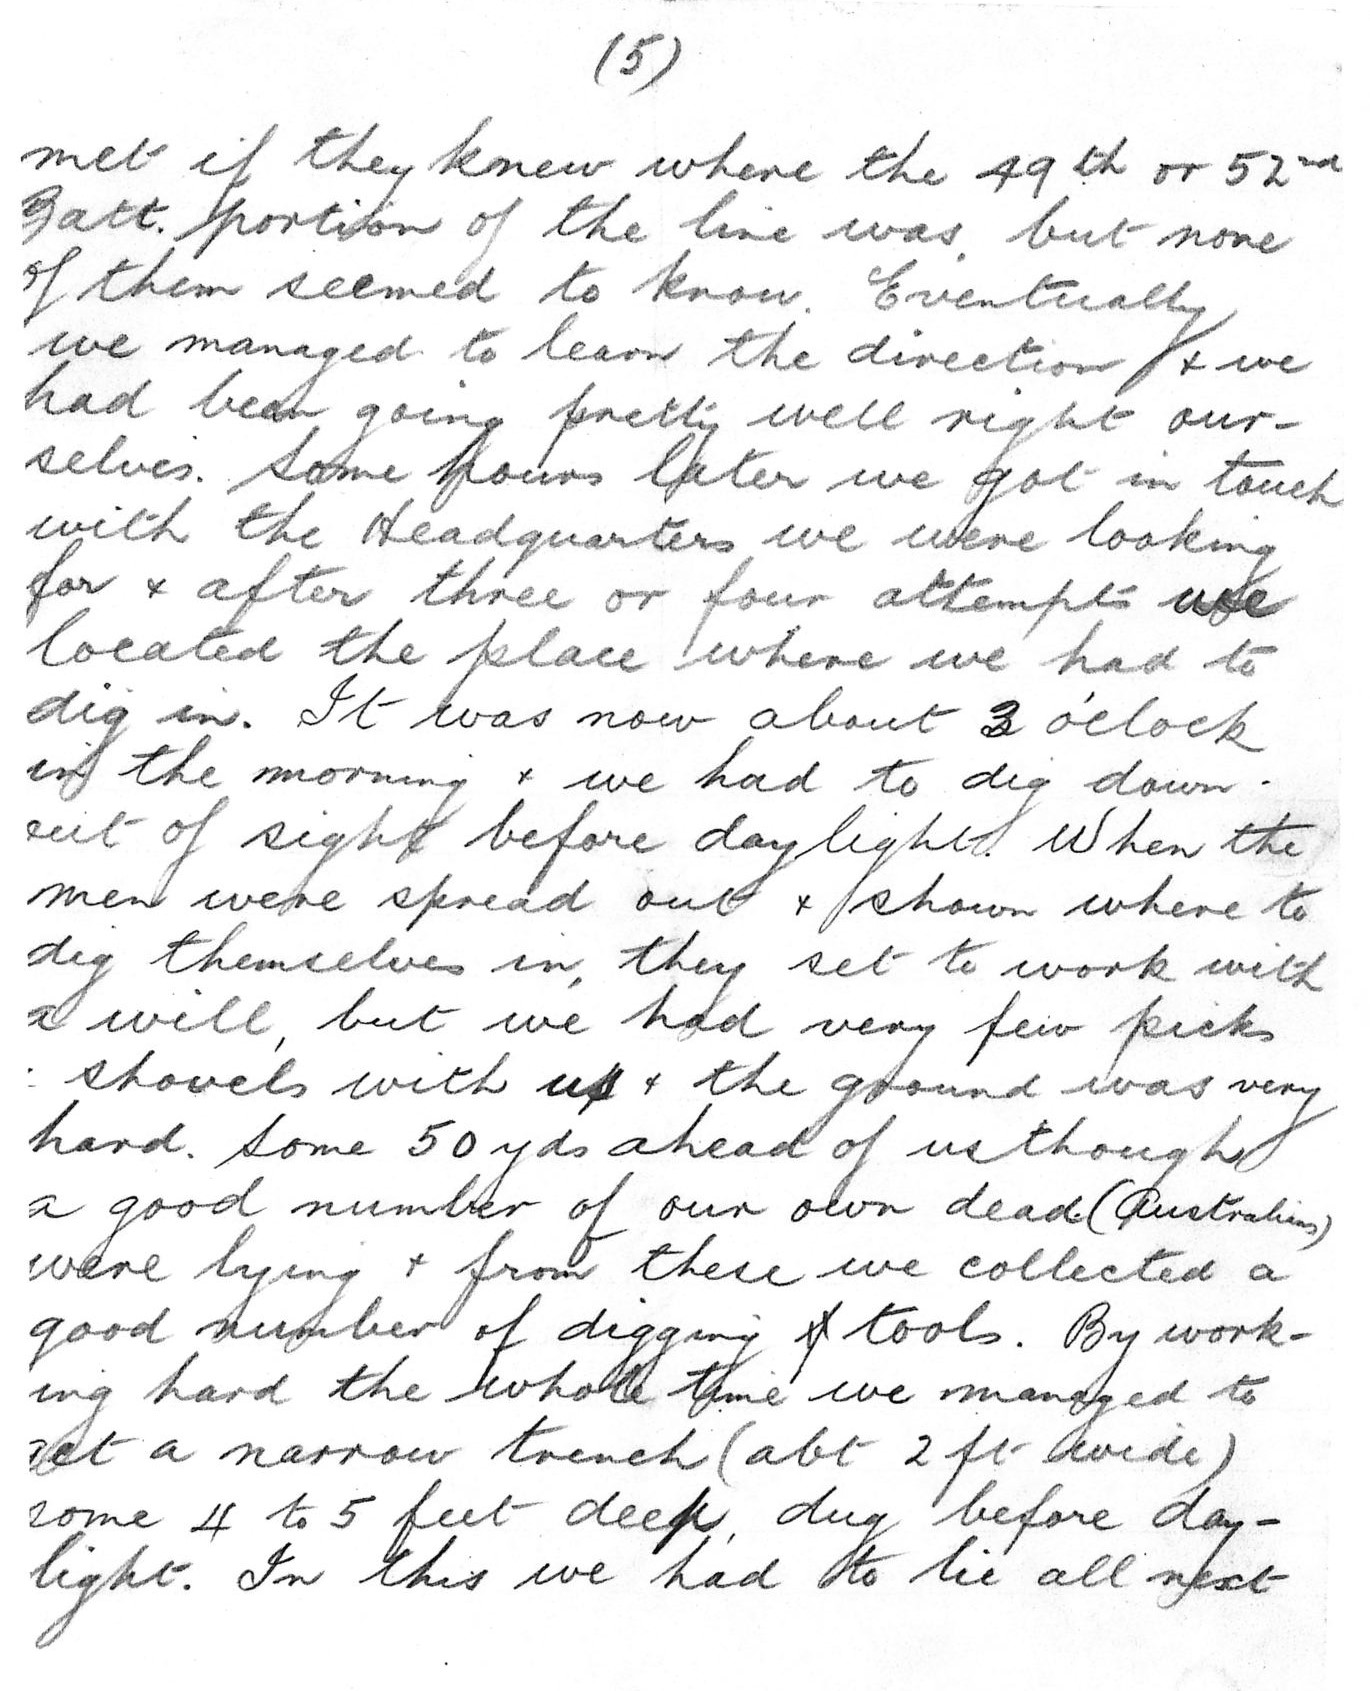 (5)
met if they knew where the 49th or 52nd
Batt. portion of the line was, but none
of them seemed to know. Eventually
we managed to learn the direction & we
had been going pretty well right our-
selves. Some hours later we got in touch
with the Headquarters we were looking
for & after three or four attempts we
located the place where we had to
dig in. It was now about 3 o'clock
in the morning & we had to dig down
out of sight before daylight. When the
men were spread out & shown where to
dig themselves in, they set to work with
a will, but we had very few picks
shovels with us & the ground was very
hard. Some 50 yds ahead of us though
a good number of our own dead (Australians)
were lying & from these we collected a
good number of digging tools. By work-
ing hard the whole time we managed to
get a narrow trench (abt 2 ft wide)
some 4 to 5 feet deep, dug before day-
light. In this we had to lie all next